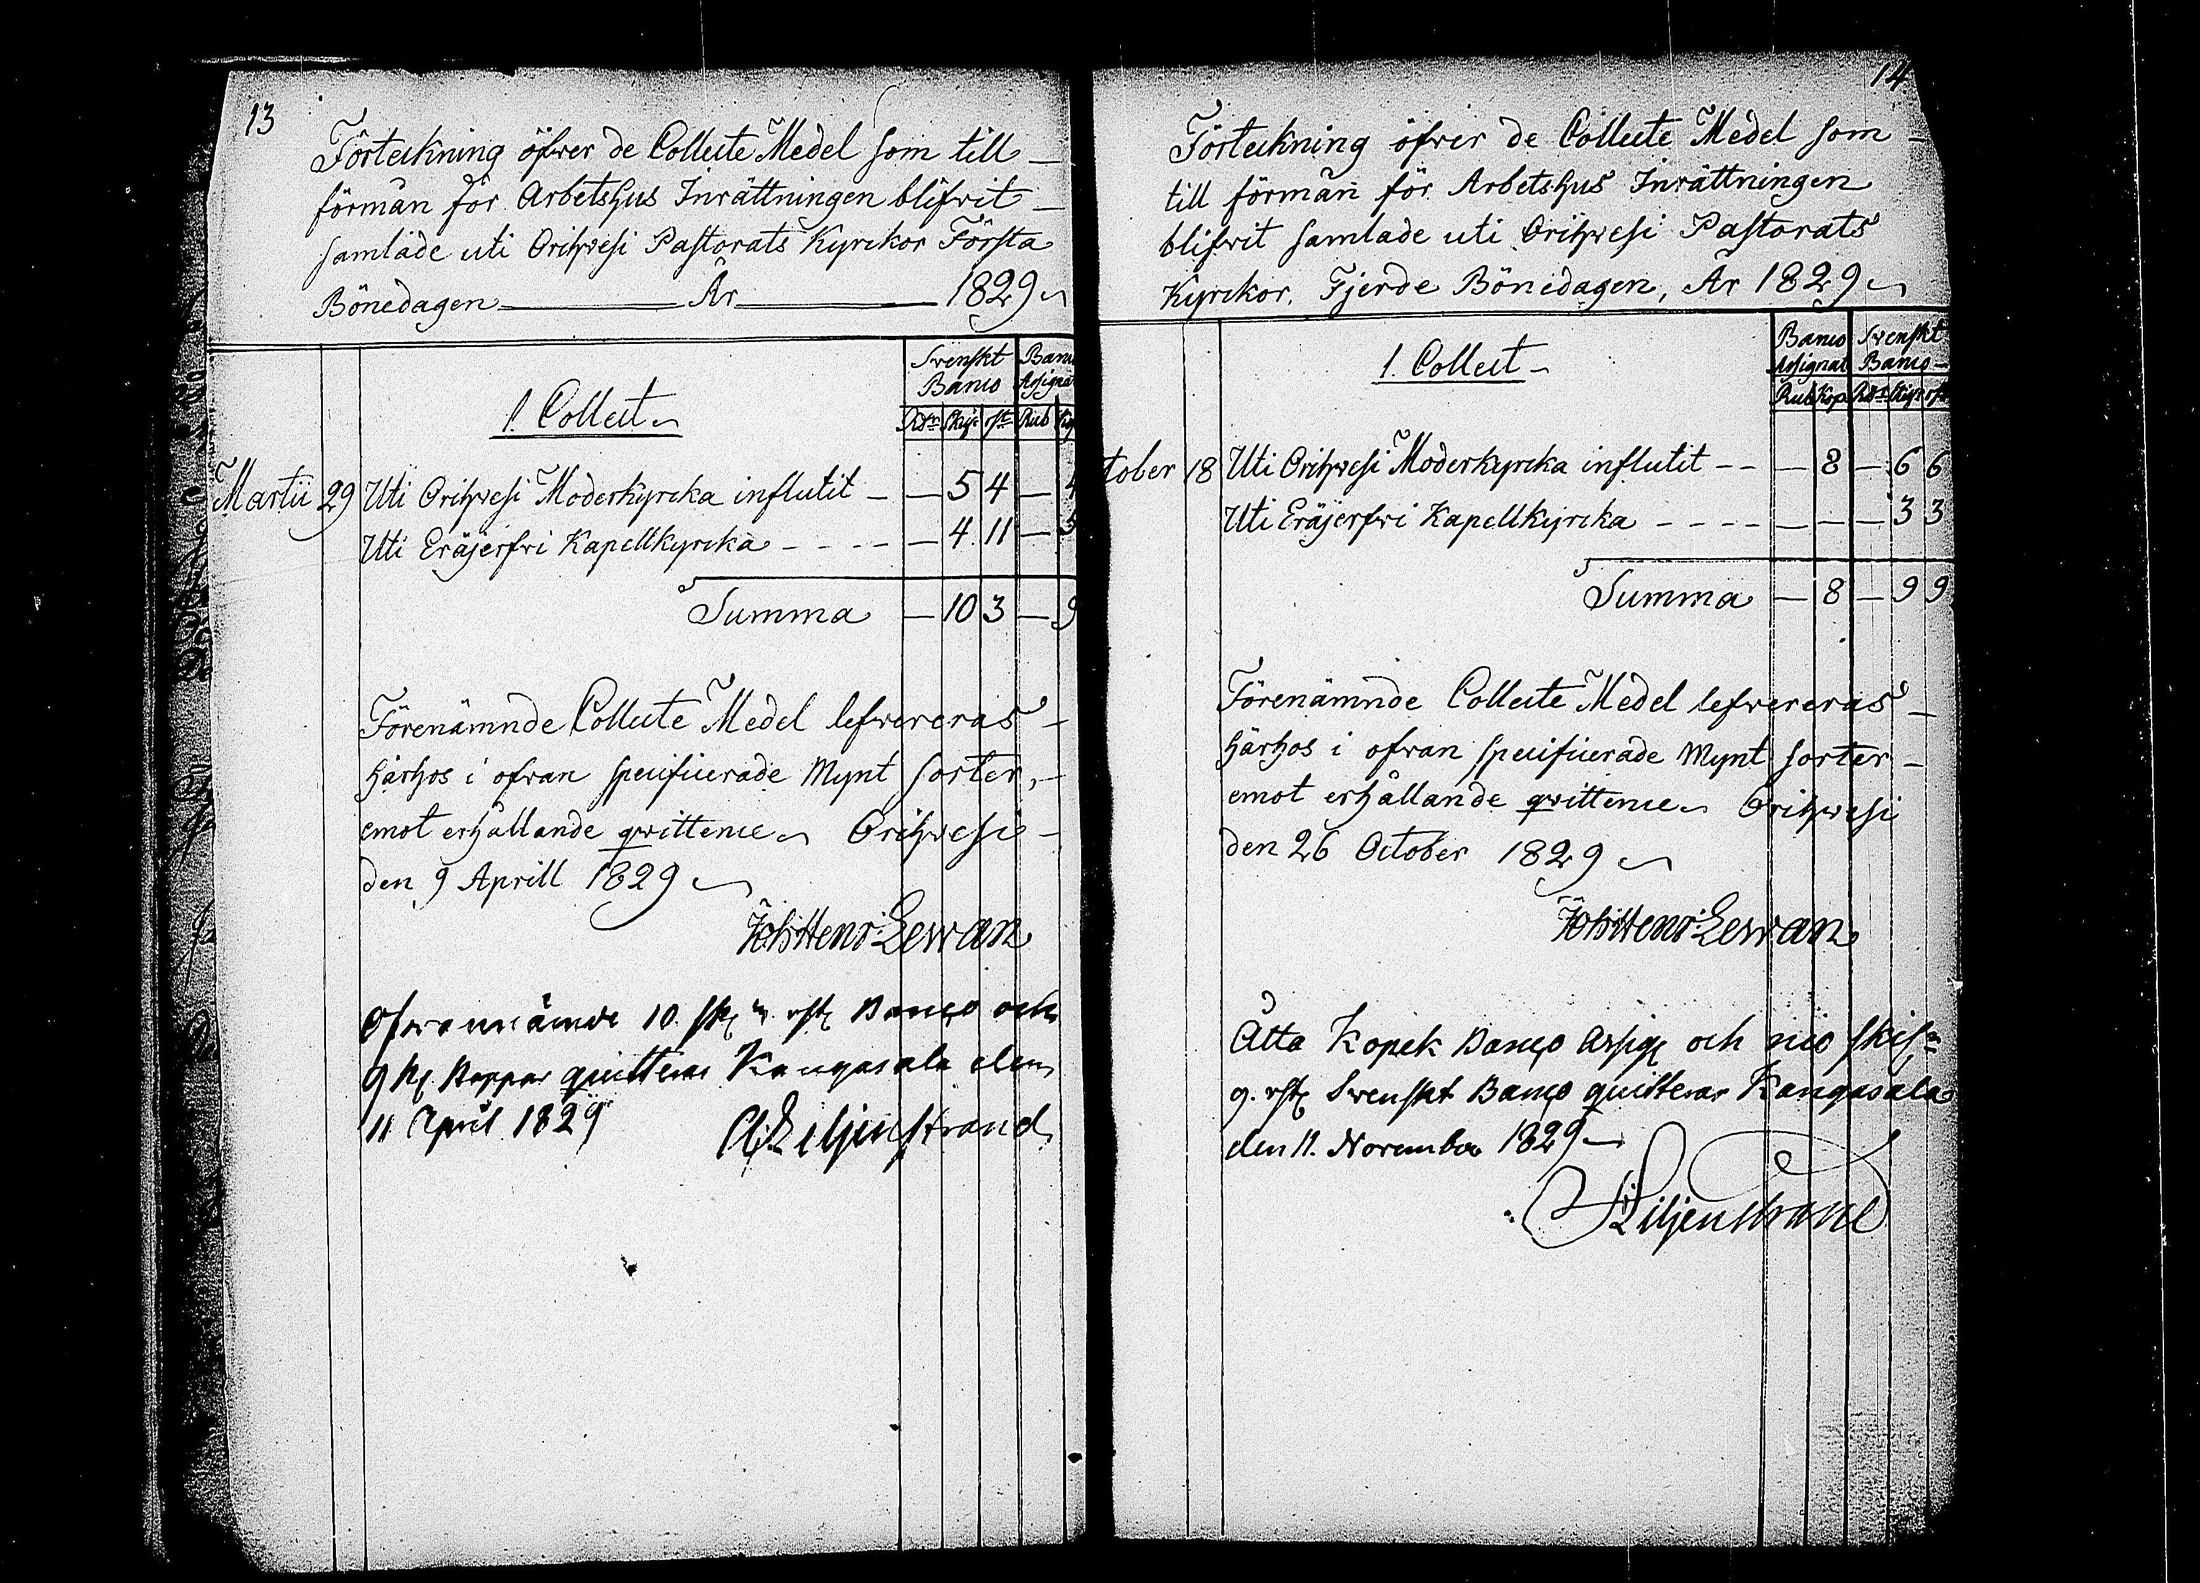 13
Förteckning öfver de Collecte Medel som till
förmån för Arbetshus Inrättningen blifvit
samlade uti Orihvesi Pastorats Kyrckor Första
Bönedagen År 1829
Svenskt Banco
Banco Assignat
1. Collect
Rdr Skgr rst Rub Kop
Martii 29 Uti Orihvesi Moderkyrcka influtit – – 5 4 – 4
Uti Eräjerfvi Kapellkyrcka – – – – – 4 11 – 5
Summa – 10 3 – 9
Förenämnde Collecte Medel lefvereras
härhos i ofvan specificerade Mynt sorter,
emot erhållande qvittence Orihvesi
den 9 Aprill 1829
Joh: Henr: Levan
Ofvannämde 10. sk 3 rst Banco och
9 K Koppar quitteras Kangasala den
11 April 1829
Liljenstrand
14
Förteckning öfver de Collecte Medel som
till förmån för Arbetshus Inrättningen
blifvit samlade uti Orihvesi Pastorats
Kyrckor, Fjerde Bönedagen, År 1829
Banco Assignat
Svenskt Banco
1. Collect
Rub Kop Rdr Skgr rst
tober 18 Uti Orihvesi Moderkyrcka influtit – – – 8 – 6 6
Uti Eräjerfvi Kapellkyrcka – – – – – – – 3 3
Summa – 8 – 9 9
Förenämnde Collecte Medel lefvereras
härhos i ofvan specificerade Mynt sorter
emot erhållande qvittence Orihvesi
den 26 October 1829
Joh: Henr: Levan
Åtta Kopek Banco Assig och nio skisr
9. rst Svenskt Banco quitteras Kangasala
den 11. November 1829
Liljenstrand